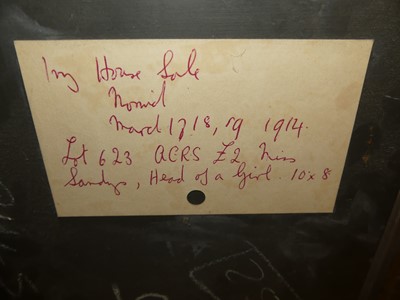 Ivy House Sale
March 17, 18, 19 1914.
Lot 623 ACRS £2 Miss
Sandys, Head of a Girl. 10 x 8